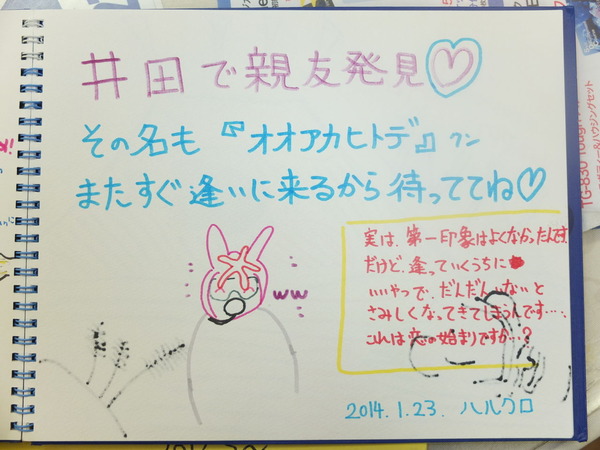 井田で親友発見♡
その名も『オオアカヒトデ』クン
またすぐ逢いに来るから待っててね♡
ww
実は、第一印象はよくなかったんです。
だけど、逢っていくうちに
いいやつで、だんだんいないと
さみしくなってきてしまうんです…。
これは恋の始まりですか…?
2014.1.23. ハルクロ